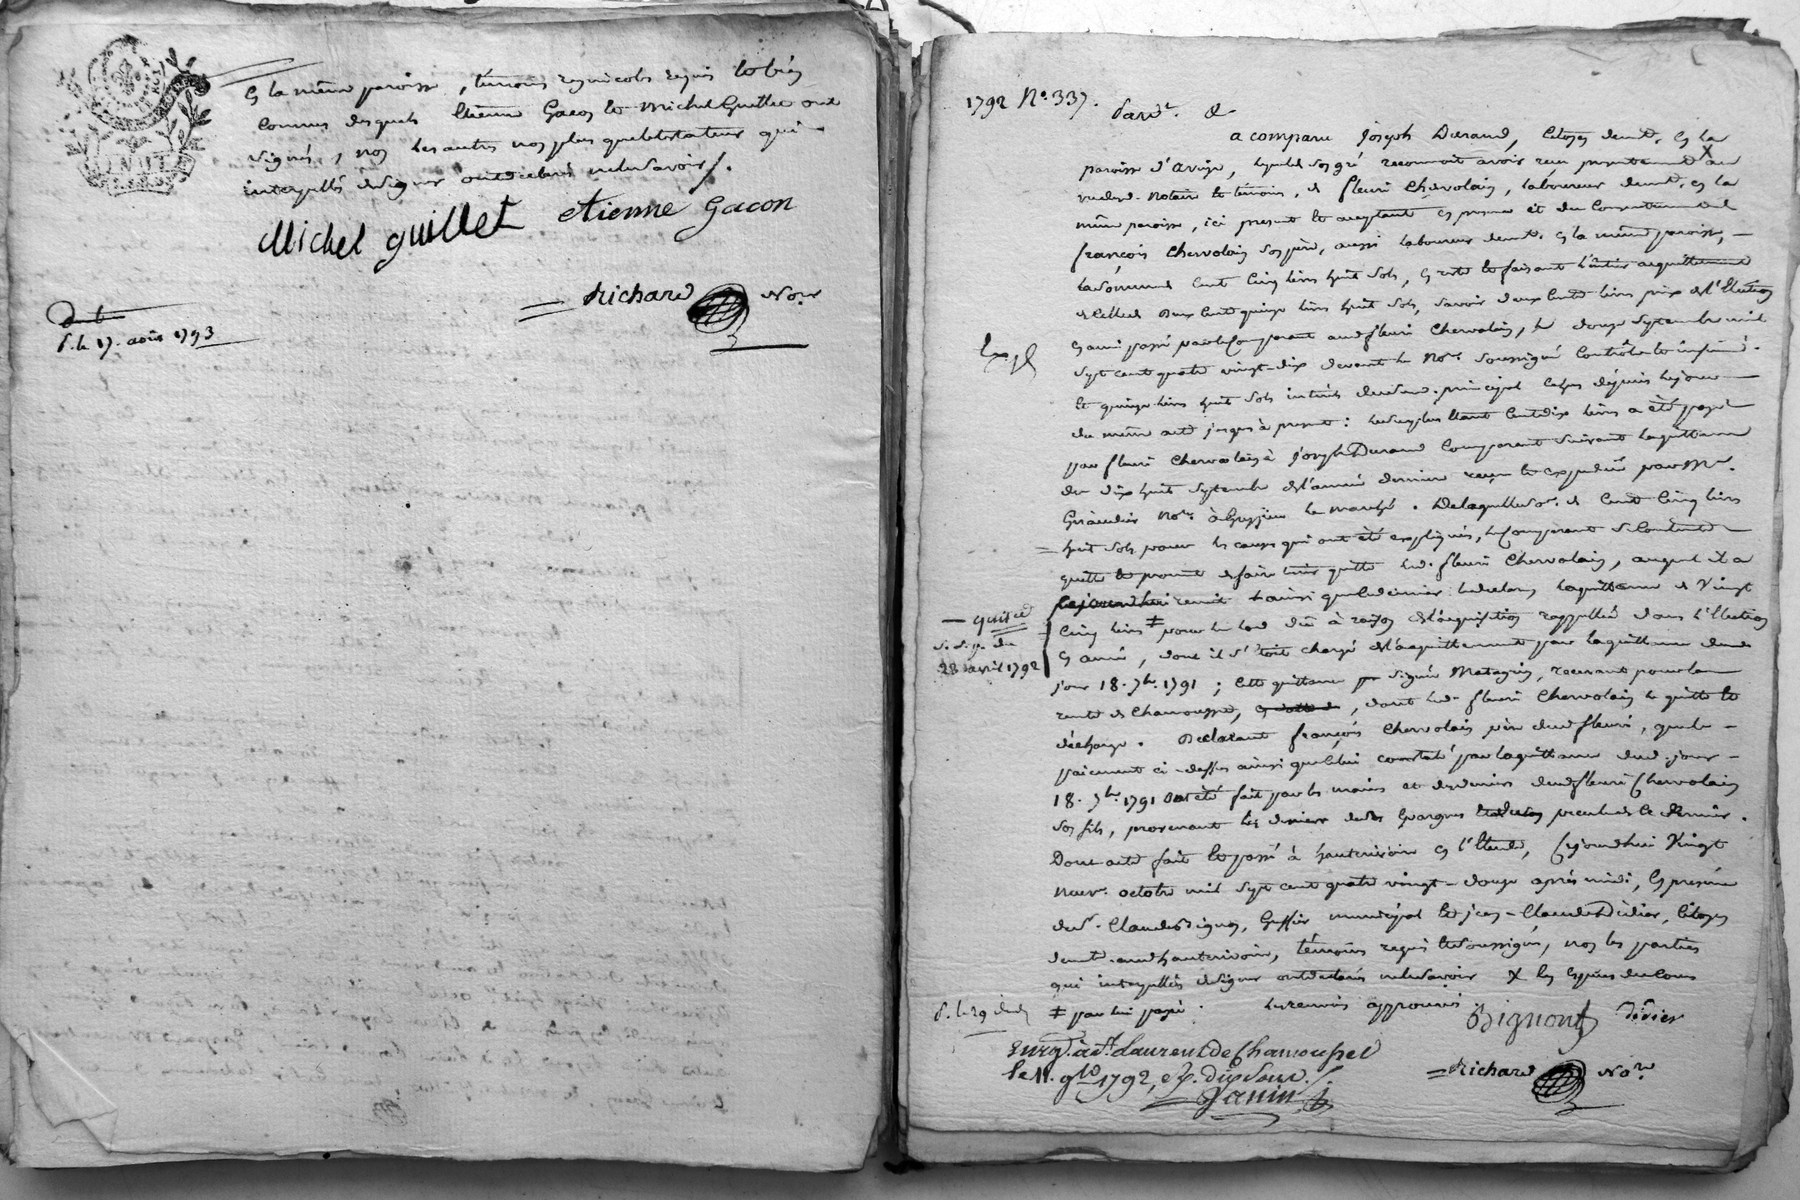 en la même paroisse, témoins
connus desquels Etienne Gacon et Michel Guillet ont
signés, non les autres non plus que le testateur qui
interpellés de signer ont déclaré ne le savoir /.
Michel guillet etienne Gacon
Richard Nore
d. le 17. août 1793
1792 N°. 337.
Pard.t &
a comparu Joseph Durand, Citoyen demt. en la
paroisse d'aveize, lequel de son gré reconnoit avoir reçu présentement X au
vu desd. Notaire et témoins, de fleuri Chervolain, laboureur demt. en la
même paroisse, ici présent et acceptant en personne et du Consentement de
françois Chervolain son père, aussi laboureur demt. en la même paroisse,
la somme Cent Cinq livres huit sols, en reste et faisant l'entier acquittement
de celle de Deux Cent quinze livres huit sols, savoir deux Cent livres prix de l'Election
en ami passé par le Comparant aud. fleuri Chervolain, le douze septembre mil
sept cent quatre vingt-dix devant le Nore. soussigné Contrôlé et insinué.
et quinze livres huit sols intérêt dud. principal depuis le jour
du même acte jusques à présent : le surplus étant Cent dix livres a été payé
par fleuri Chervolain à Joseph Durand Comparant suivant la quittance
du dix huit septembre de l'année dernière reçue et expédiée par Me.
Nore. à Grezieu le marché. De laquelle so. de Cent Cinq livres
huit sols pour les causes qui ont été expliquées, le Comparant se Contente
quitte et promet de faire tenir quitte led. fleuri Chervolain, auquel il a
remis la quittance de Vingt
Cinq livres ‡ pour le lod dû à raison de l'acquisition rappellée dans l'Election
en ami, dont il s'étoit chargé de l'acquittement par la quittance dud.
jour 18. 7bre. 1791 ; cette quittance par signée recevant pour la
rente de Chamousset, , dont led. fleuri Chervolain le quitte et
décharge. Déclarant françois Chervolain père dud. fleuri, que le
paiement ci-dessus ainsi que celui constaté par la quittance dud. jour
18. 7bre. 1791 ont été fait par les mains et des deniers dud. fleuri Chervolain
son fils, provenant des deniers de ses épargnes pécule de ce dernier.
Dont acte fait et passé à hauterivoire en l'étude, Cejourd'hui Vingt
neuv. octobre mil sept cent quatre vingt-douze après midi, en présence
de sr. Claude Bignon, Greffier municipal et jean-Claude Didier, Citoyen
demt. aud. hauterivoire, témoins requis et soussignés, non les parties
qui interpellées de signer ont déclaré ne le savoir X les espèces de cours
‡ par lui payé. les renvois approuvés.
Exp.
quitce
d. s. p. du
28 avril 1792
Bignont Didier
Richard Nore
Enreg. à St. Laurent de Chamousset
le 11. 9bre 1792, dix sous
Janin